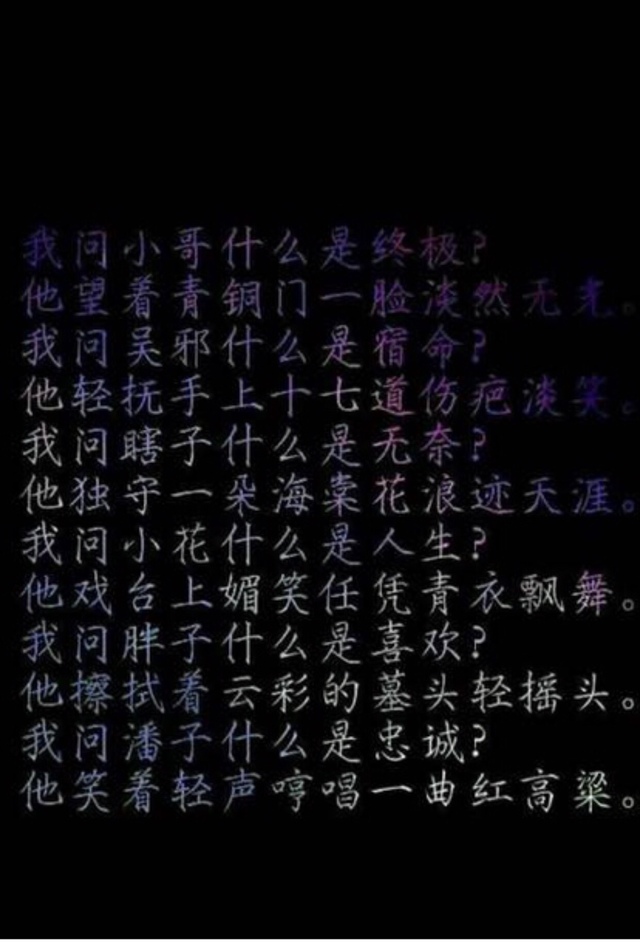 我问小哥什么是终极?
他望着青铜门一脸淡然无光。
我问吴邪什么是宿命?
他轻抚手上十七道伤疤淡笑。
我问瞎子什么是无奈?
他独守一朵海棠花浪迹天涯。
我问小花什么是人生?
他戏台上媚笑任凭青衣飘舞。
我问胖子什么是喜欢?
他擦拭着云彩的墓头轻摇头。
我问潘子什么是忠诚?
他笑着轻声哼唱一曲红高粱。